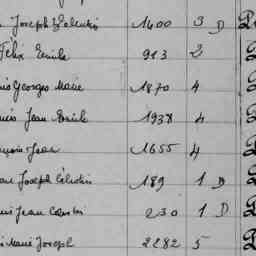 Joseph Célestin 1400 3 D
Félix Emile 913 2
Georges Marie 1870 4
Jean Emile 1938 4
Jean 1655 4
Joseph Célestin 189 1 D
Jean 230 1 D
Marie Joseph 2282 5